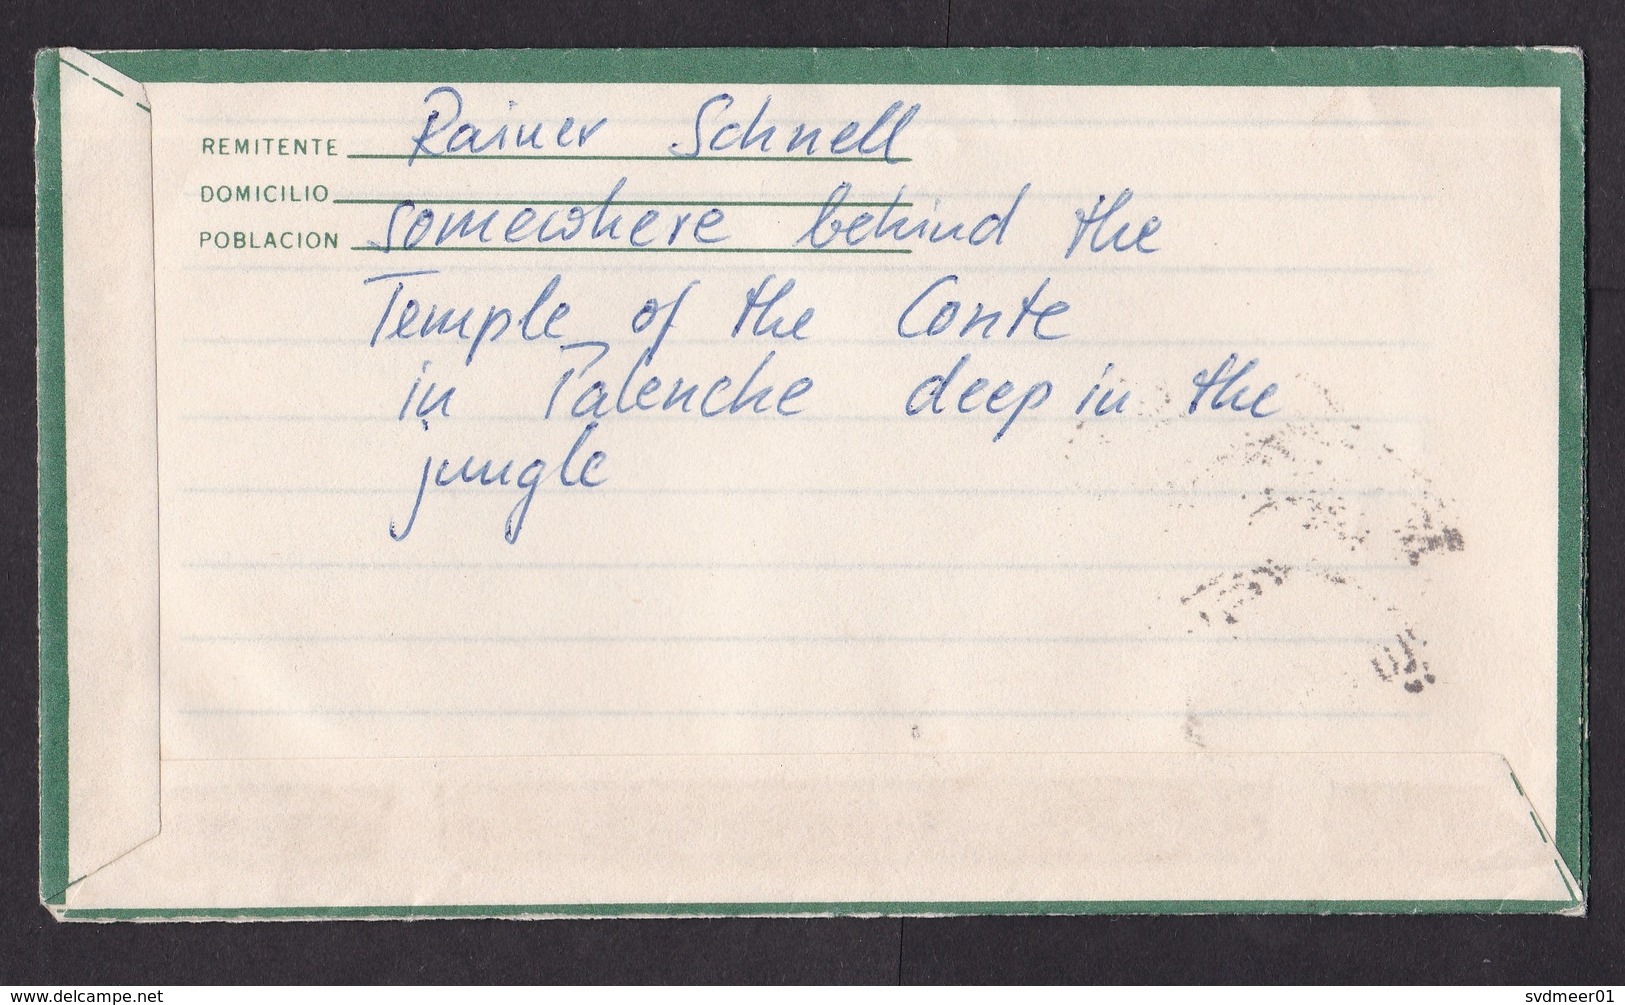 REMITENTE Rainer Schnell
DOMICILIO
POBLACION somewhere behind the
Temple of the Conte
in Palenche deep in the
jungle
delcampe.net
svdmeer01